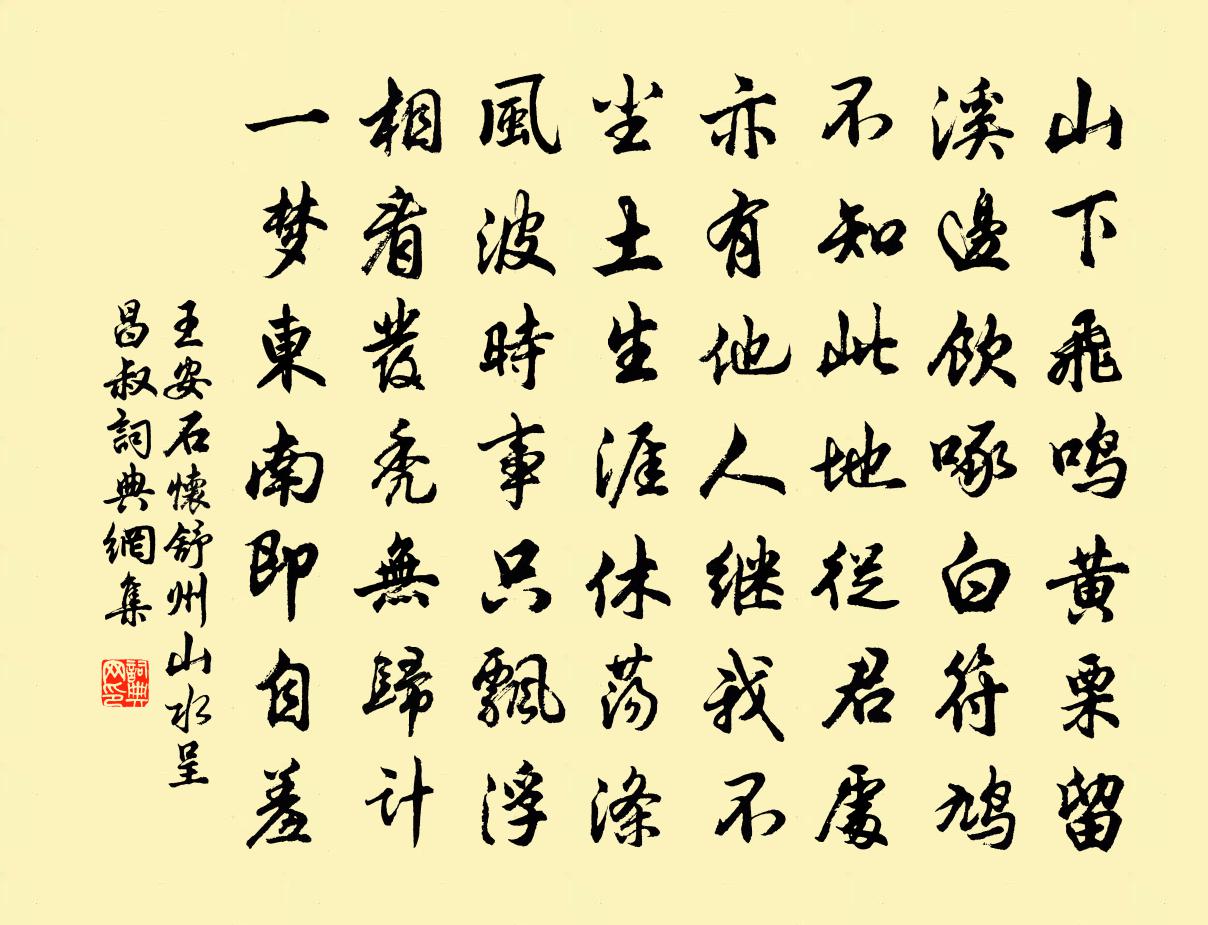 山下飛鳴黄栗留
溪邊飲啄白符鳩
不知此地從君處
亦有他人继我不
尘土生涯休荡滌
風波時事只飄浮
相看发秃無歸计
一梦東南即自羞
王安石懷舒州山水呈
昌叔詞典網集
詞典
网印